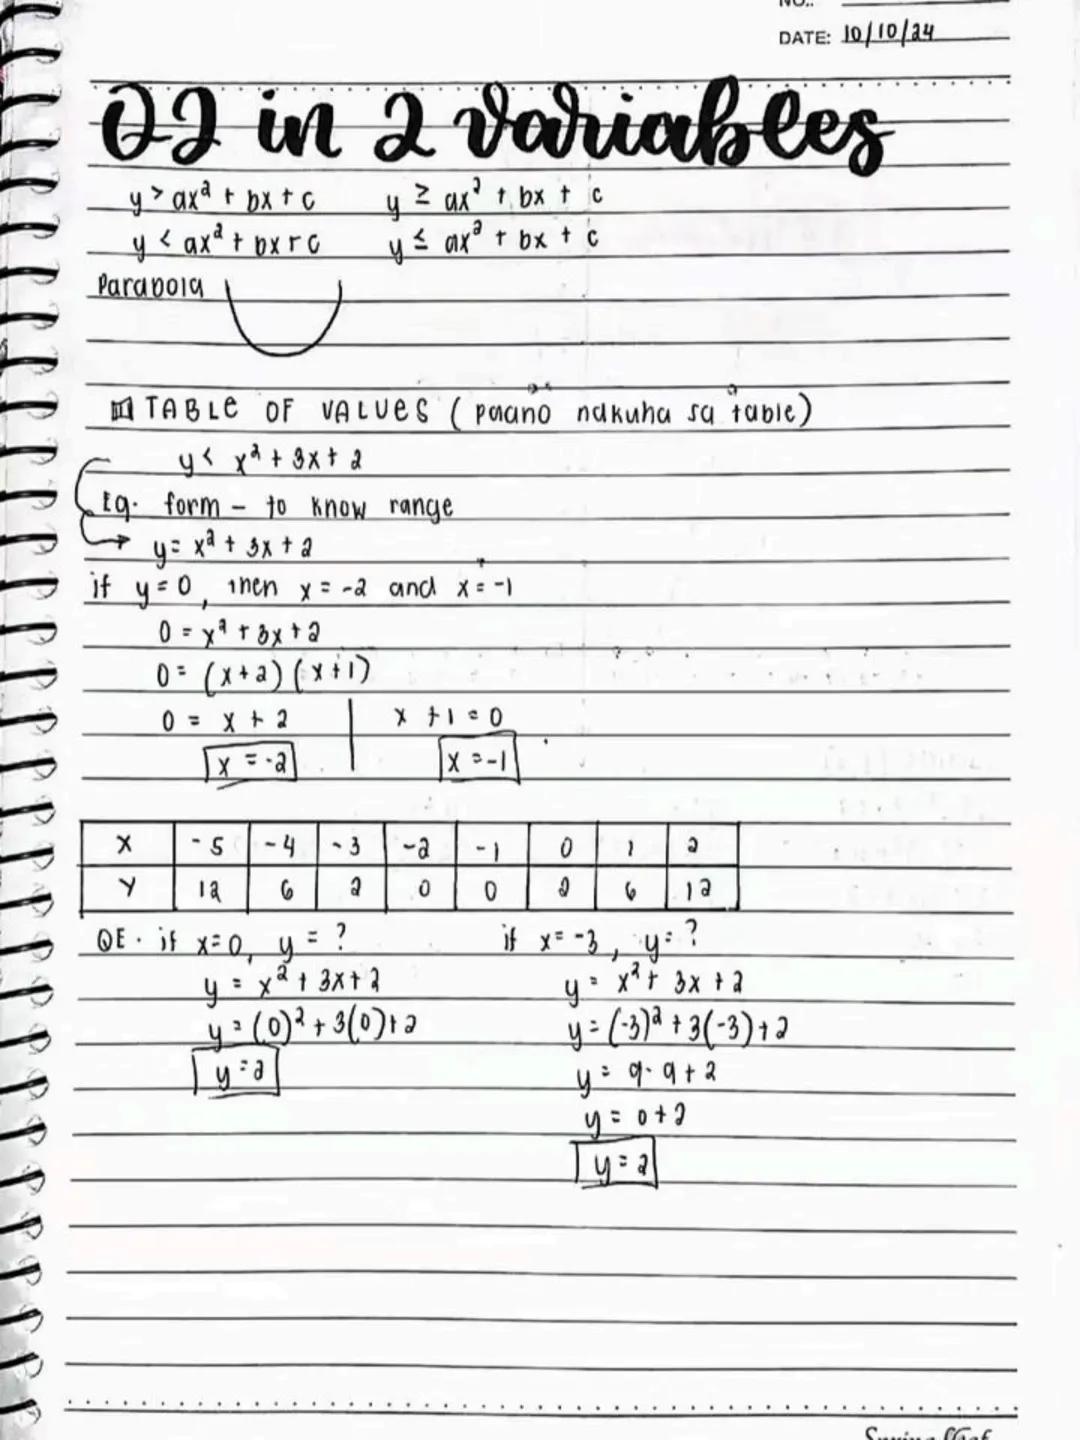 NO.:
DATE: 10/10/24
QI in 2 variables
y > ax² + bx + c y ≥ ax² + bx + c
y < ax² + bx + c y ≤ ax² + bx + c
Parabola
TABLE OF VALUES ( paano nakuha sa table)
y < x² + 3x + 2
Eq. form – to know range
y = x² + 3x + 2
if y = 0, then x = -2 and x = -1
0 = x² + 3x + 2
0 = (x+2) (x+1)
0 = x + 2 | x + 1 = 0
x = -2 x = -1
X -5 -4 -3 -2 -1 0 1 2
Y 12 6 2 0 0 2 6 12
QE. if x = 0, y = ? if x = -3, y = ?
y = x² + 3x + 2 y = x² + 3x + 2
y = (0)² + 3(0) + 2 y = (-3)² + 3(-3) + 2
y = 2 y = 9 - 9 + 2
y = 0 + 2
y = 2